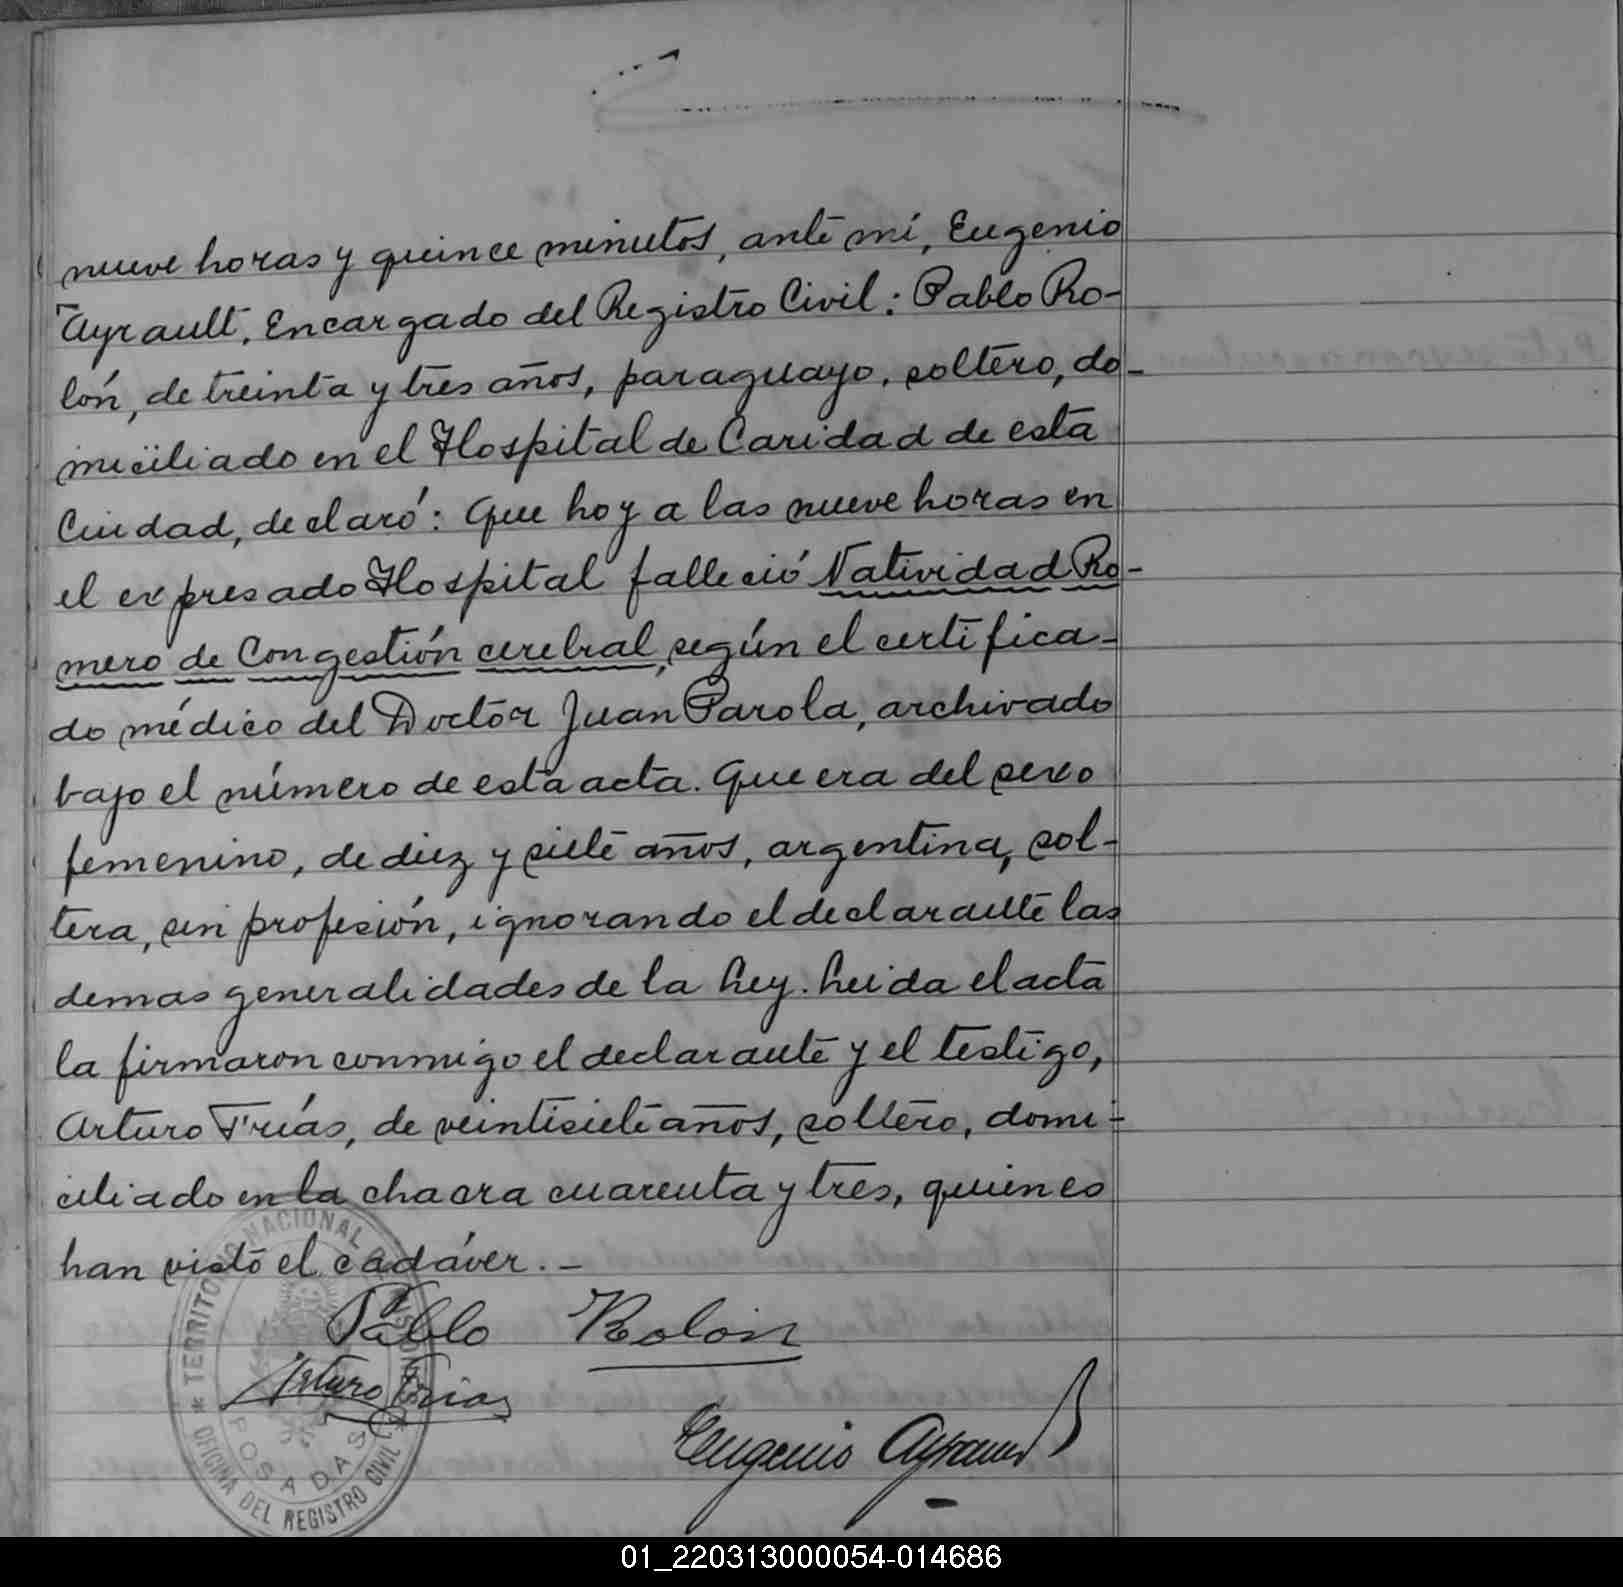 nueve horas y quince minutos, ante mí, Eugenio
Ayrault, Encargado del Registro Civil: Pablo Ro-
lón, de treinta y tres años, paraguayo, soltero, do-
miciliado en el Hospital de Caridad de esta
Ciudad, declaró: Que hoy a las nueve horas en
el expresado Hospital falleció Natividad Ro-
mero de Congestión cerebral, según el certifica-
do médico del Doctor Juan Parola, archivado
bajo el número de esta acta. Que era del sexo
femenino, de diez y siete años, argentina, sol-
tera, sin profesión, ignorando el declarante las
demas generalidades de la Ley. Leida el acta
la firmaron conmigo el declarante y el testigo,
Arturo Frías, de veintisiete años, soltero, domi-
ciliado en la chacra cuarenta y tres, quienes
han visto el cadáver.-
Pablo Rolón
Arturo Frias
Eugenio Ayrault
TERRITORIO NACIONAL DE MISIONES
OFICINA DEL REGISTRO CIVIL
POSADAS
01_220313000054-014686